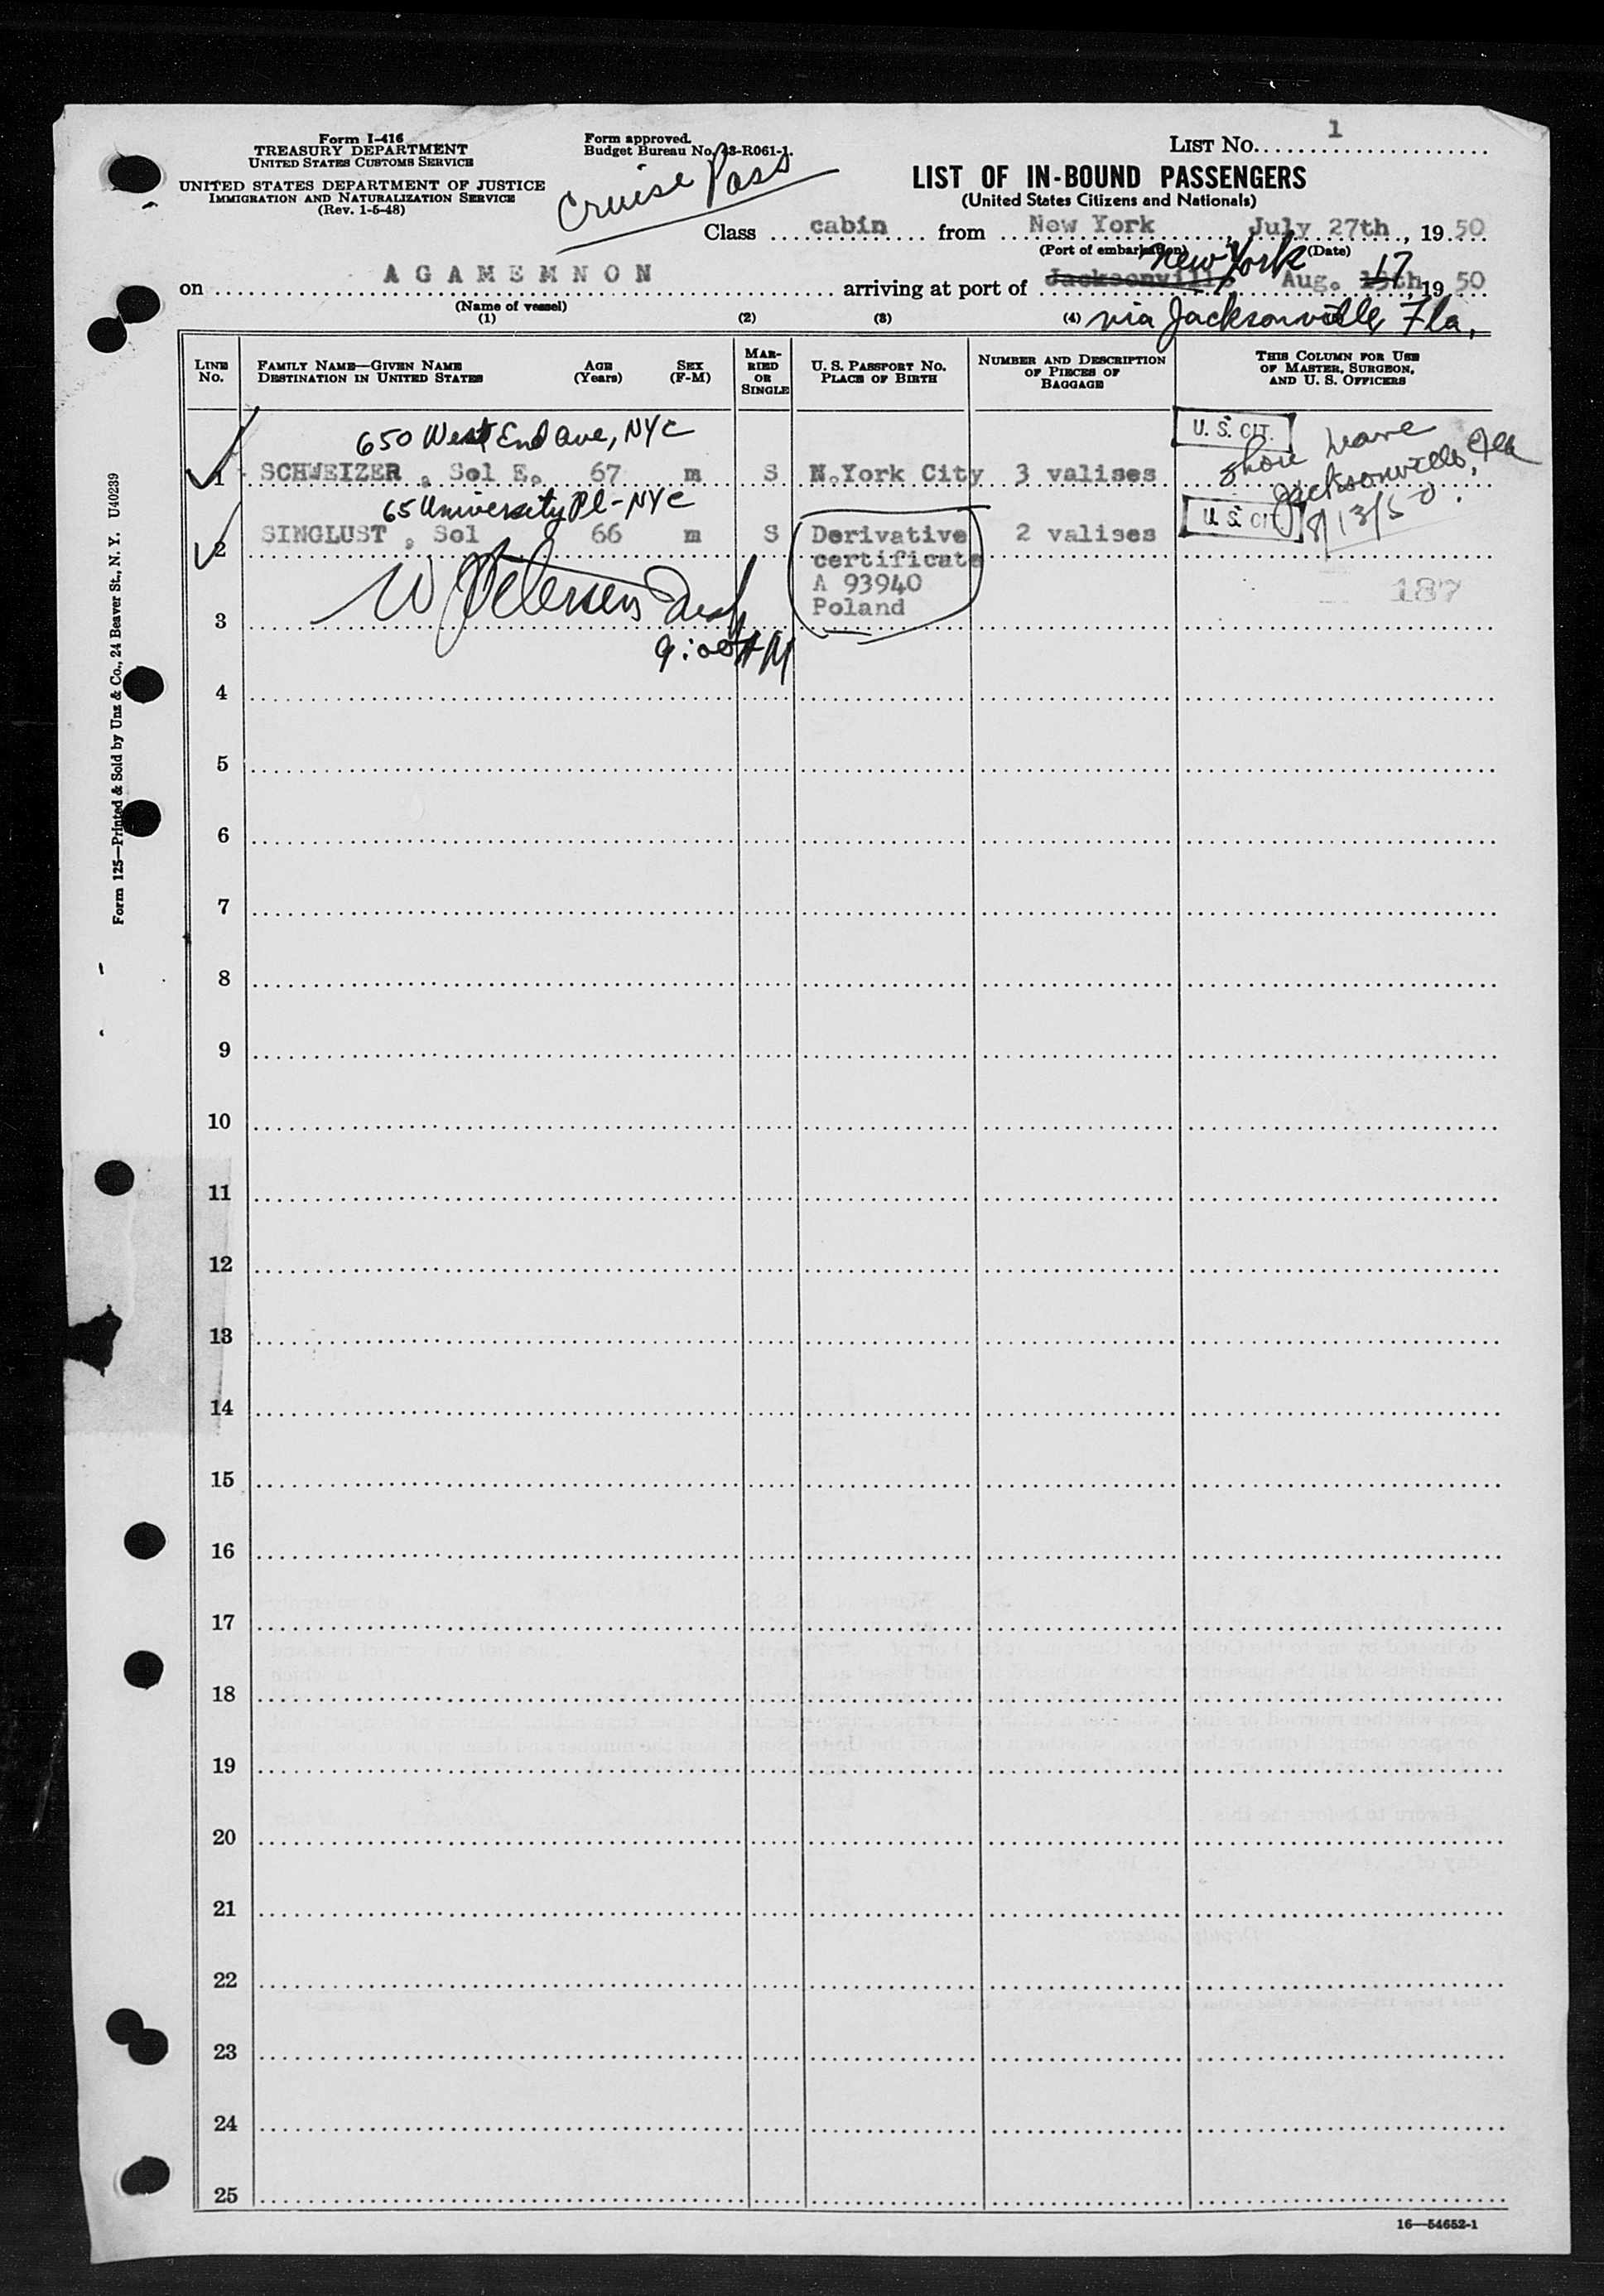 Form I-416
TREASURY DEPARTMENT
UNITED STATES CUSTOMS SERVICE
UNITED STATES DEPARTMENT OF JUSTICE
IMMIGRATION AND NATURALIZATION SERVICE
(Rev. 1-5-48)
Form approved.
Budget Bureau No. 43-R061-1.
Cruise Pass
LIST No. 1
LIST OF IN-BOUND PASSENGERS
(United States Citizens and Nationals)
Class cabin from New York, July 27th, 1950
(Port of embarkation) (Date)
New York 17
on AGAMEMNON arriving at port of Jacksonville Aug. 13th, 1950
(Name of vessel)
via Jacksonville, Fla.
(1) (2) (3) (4)
LINE No. FAMILY NAME—GIVEN NAME DESTINATION IN UNITED STATES AGE (Years) SEX (F-M) MARRIED OR SINGLE U. S. PASSPORT No. PLACE OF BIRTH NUMBER AND DESCRIPTION OF PIECES OF BAGGAGE THIS COLUMN FOR USE OF MASTER, SURGEON, AND U. S. OFFICERS
650 West End Ave, NYC U. S. CIT.
1 SCHWEIZER, Sol E. 67 m S N.York City 3 valises
Shore leave
Jacksonville, Fla
8/13/50.
65 University Pl - NYC U. S. CIT
2 SINGLUST, Sol 66 m S Derivative 2 valises
certificate
A 93940
Poland
187
W Petersen
9:00 AM
3
4
5
6
7
8
9
10
11
12
13
14
15
16
17
18
19
20
21
22
23
24
25
16—54652-1
Form 125—Printed & Sold by Unz & Co., 24 Beaver St., N. Y. U40239